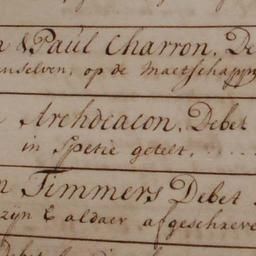 & Paul Charron, De
nselven, op de Maetschappy
Archdeacon, Debet
in Spetie getelt, . . . .
Timmers Debet
zyn & aldaer afgeschreve